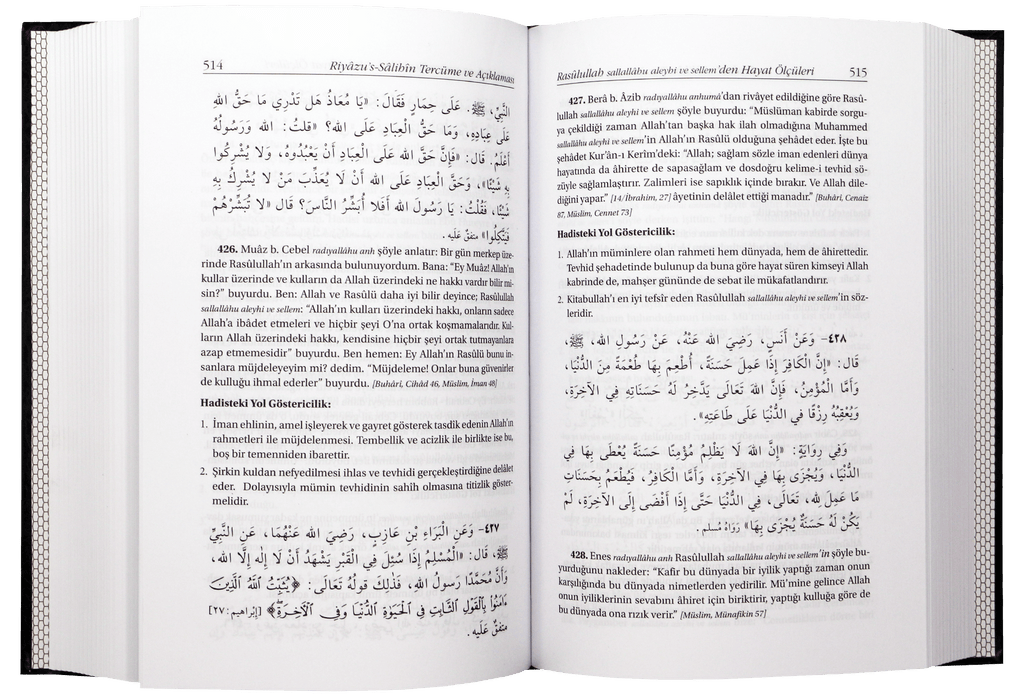 514 Riyâzu's-Sâlihîn Tercüme ve Açıklaması
النَّبِيِّ، ﷺ، عَلَى حِمَارٍ فَقَالَ: «يَا مُعَاذُ هَل تَدْرِي مَا حَقُّ اللهِ
عَلى عِبَادِهِ، وَمَا حَقُّ الْعِبَادِ عَلَى اللهِ؟ «قلتُ: الله وَرَسُولُهُ
أَعْلَمُ. قال: «فَإِنَّ حَقَّ اللهِ عَلَى الْعِبَادِ أَنْ يَعْبُدُوهُ، وَلا يُشْرِكُوا
بِهِ شَيْئًا»، وَحَقَّ الْعِبَادِ عَلَى اللهِ أَنْ لَا يُعَذِّبَ مَنْ لَا يُشْرِكُ بِهِ
شَيْئًا، فَقُلْتُ: يَا رَسُولَ اللهِ أَفَلا أُبَشِّرُ النَّاسَ؟ قال «لا تُبَشِّرْهُمْ
فَيَتَّكِلُوا» متفقٌ عليه.
426. Muâz b. Cebel radıyallâhu anh şöyle anlatır: Bir gün merkep üze-
rinde Rasûlullah'ın arkasında bulunuyordum. Bana: "Ey Muâz! Allah'ın
kullar üzerinde ve kulların da Allah üzerindeki ne hakkı vardır bilir mi-
sin?" buyurdu. Ben: Allah ve Rasûlü daha iyi bilir deyince; Rasûlullah
sallallâhu aleyhi ve sellem: "Allah'ın kulları üzerindeki hakkı, onların sadece
Allah'a ibâdet etmeleri ve hiçbir şeyi O'na ortak koşmamalarıdır. Kul-
ların Allah üzerindeki hakkı, kendisine hiçbir şeyi ortak tutmayanlara
azap etmemesidir" buyurdu. Ben hemen: Ey Allah'ın Rasûlü bunu in-
sanlara müjdeleyeyim mi? dedim. "Müjdeleme! Onlar buna güvenirler
de kulluğu ihmal ederler" buyurdu. [Buhâri, Cihâd 46, Müslim, İman 48]
Hadisteki Yol Göstericilik:
1. İman ehlinin, amel işleyerek ve gayret gösterek tasdik edenin Allah'ın
rahmetleri ile müjdelenmesi. Tembellik ve acizlik ile birlikte ise bu,
boş bir temenniden ibarettir.
2. Şirkin kuldan nefyedilmesi ihlas ve tevhidi gerçekleştirdiğine delâlet
eder. Dolayısıyla mümin tevhidinin sahîh olmasına titizlik göster-
melidir.
٤٢٧- وَعَنِ الْبَرَاءِ بْنِ عَازِبٍ، رَضِيَ الله عَنْهُمَا، عَنِ النَّبِيِّ
ﷺ، قال: «الْمُسْلِمُ إِذَا سُئِلَ فِي الْقَبْرِ يَشْهَدُ أَنْ لَا إِلٰهَ إِلَّا الله،
وَأَنَّ مُحَمَّدًا رَسولُ اللهِ، فَذٰلِكَ قولُهُ تَعَالَى: ﴿يُثَبِّتُ اللَّهُ الَّذِينَ
ءَامَنُوا بِالْقَوْلِ الثَّابِتِ فِي الْحَيَوٰةِ الدُّنْيَا وَفِي الْآخِرَةِ﴾ [إبراهيم: ٢٧]
متفقٌ عَلَيه.
Rasûlullah sallallâhu aleyhi ve sellem'den Hayat Ölçüleri 515
427. Berâ b. Âzib radıyallâhu anhumâ'dan rivâyet edildiğine göre Rasû-
lullah sallallâhu aleyhi ve sellem şöyle buyurdu: "Müslüman kabirde sorgu-
ya çekildiği zaman Allah'tan başka hak ilah olmadığına Muhammed
sallallâhu aleyhi ve sellem'in Allah'ın Rasûlü olduğuna şehâdet eder. İşte bu
şehâdet Kur'ân-ı Kerîm'deki: "Allah; sağlam sözle iman edenleri dünya
hayatında da âhirette de sapasağlam ve dosdoğru kelime-i tevhid sö-
züyle sağlamlaştırır. Zalimleri ise sapıklık içinde bırakır. Ve Allah dile-
diğini yapar." [14/İbrahim, 27] âyetinin delâlet ettiği manadır." [Buhâri, Cenaiz
87, Müslim, Cennet 73]
Hadisteki Yol Göstericilik:
1. Allah'ın müminlere olan rahmeti hem dünyada, hem de âhirettedir.
Tevhid şehadetinde bulunup da buna göre hayat süren kimseyi Allah
kabrinde de, mahşer gününde de sebat ile mükafatlandırır.
2. Kitabullah'ı en iyi tefsîr eden Rasûlullah sallallâhu aleyhi ve sellem'in söz-
leridir.
٤٢٨- وَعَنْ أَنَسٍ، رَضِيَ الله عَنْهُ، عَنْ رَسُولِ اللهِ، ﷺ،
قَالَ: «إِنَّ الْكَافِرَ إِذَا عَمِلَ حَسَنَةً، أُطْعِمَ بِهَا طُعْمَةً مِنَ الدُّنْيَا،
وَأَمَّا الْمُؤْمِنُ، فَإِنَّ اللهَ تَعَالَى يَدَّخِرُ لَهُ حَسَنَاتِهِ فِي الآخِرَةِ،
وَيُعْقِبُهُ رِزْقًا فِي الدُّنْيَا عَلَى طَاعَتِهِ».
وَفِي رِوَايَةٍ: «إِنَّ اللهَ لَا يَظْلِمُ مُؤْمِنًا حَسَنَةً يُعْطَى بِهَا فِي
الدُّنْيَا، وَيُجْزَى بِهَا فِي الآخِرَةِ، وَأَمَّا الْكَافِرُ، فَيُطْعَمُ بِحَسَنَاتِ
مَا عَمِلَ لِلهِ، تَعَالَى، فِي الدُّنْيَا حَتَّى إِذَا أَفْضَى إِلَى الآخِرَةِ، لَمْ
يَكُنْ لَهُ حَسَنَةٌ يُجْزَى بِهَا» رَوَاهُ مُسلم.
428. Enes radıyallâhu anh Rasûlullah sallallâhu aleyhi ve sellem'in şöyle bu-
yurduğunu nakleder: "Kafir bu dünyada bir iyilik yaptığı zaman onun
karşılığında bu dünyada nimetlerden yedirilir. Mü'mine gelince Allah
onun iyiliklerinin sevabını âhiret için biriktirir, yaptığı kulluğa göre de
bu dünyada ona rızık verir." [Müslim, Münafikin 57]